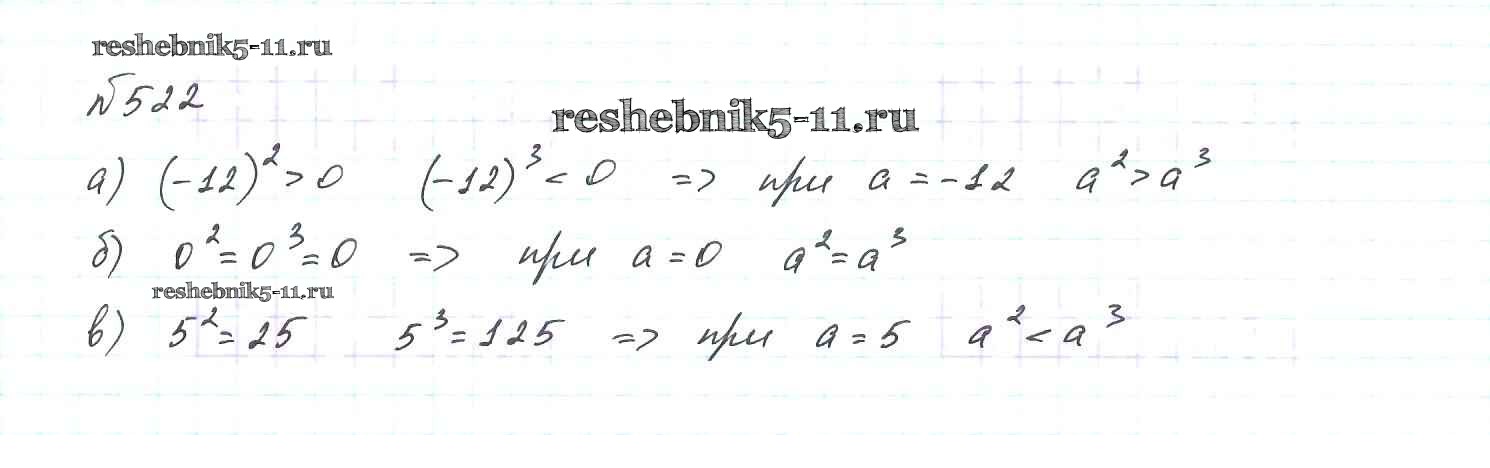 reshebnik5-11.ru
№522
reshebnik5-11.ru
а) (-12)² > 0 (-12)³ < 0 => при a = -12 a² > a³
б) 0² = 0³ = 0 => при a = 0 a² = a³
reshebnik5-11.ru
в) 5² = 25 5³ = 125 => при a = 5 a² < a³